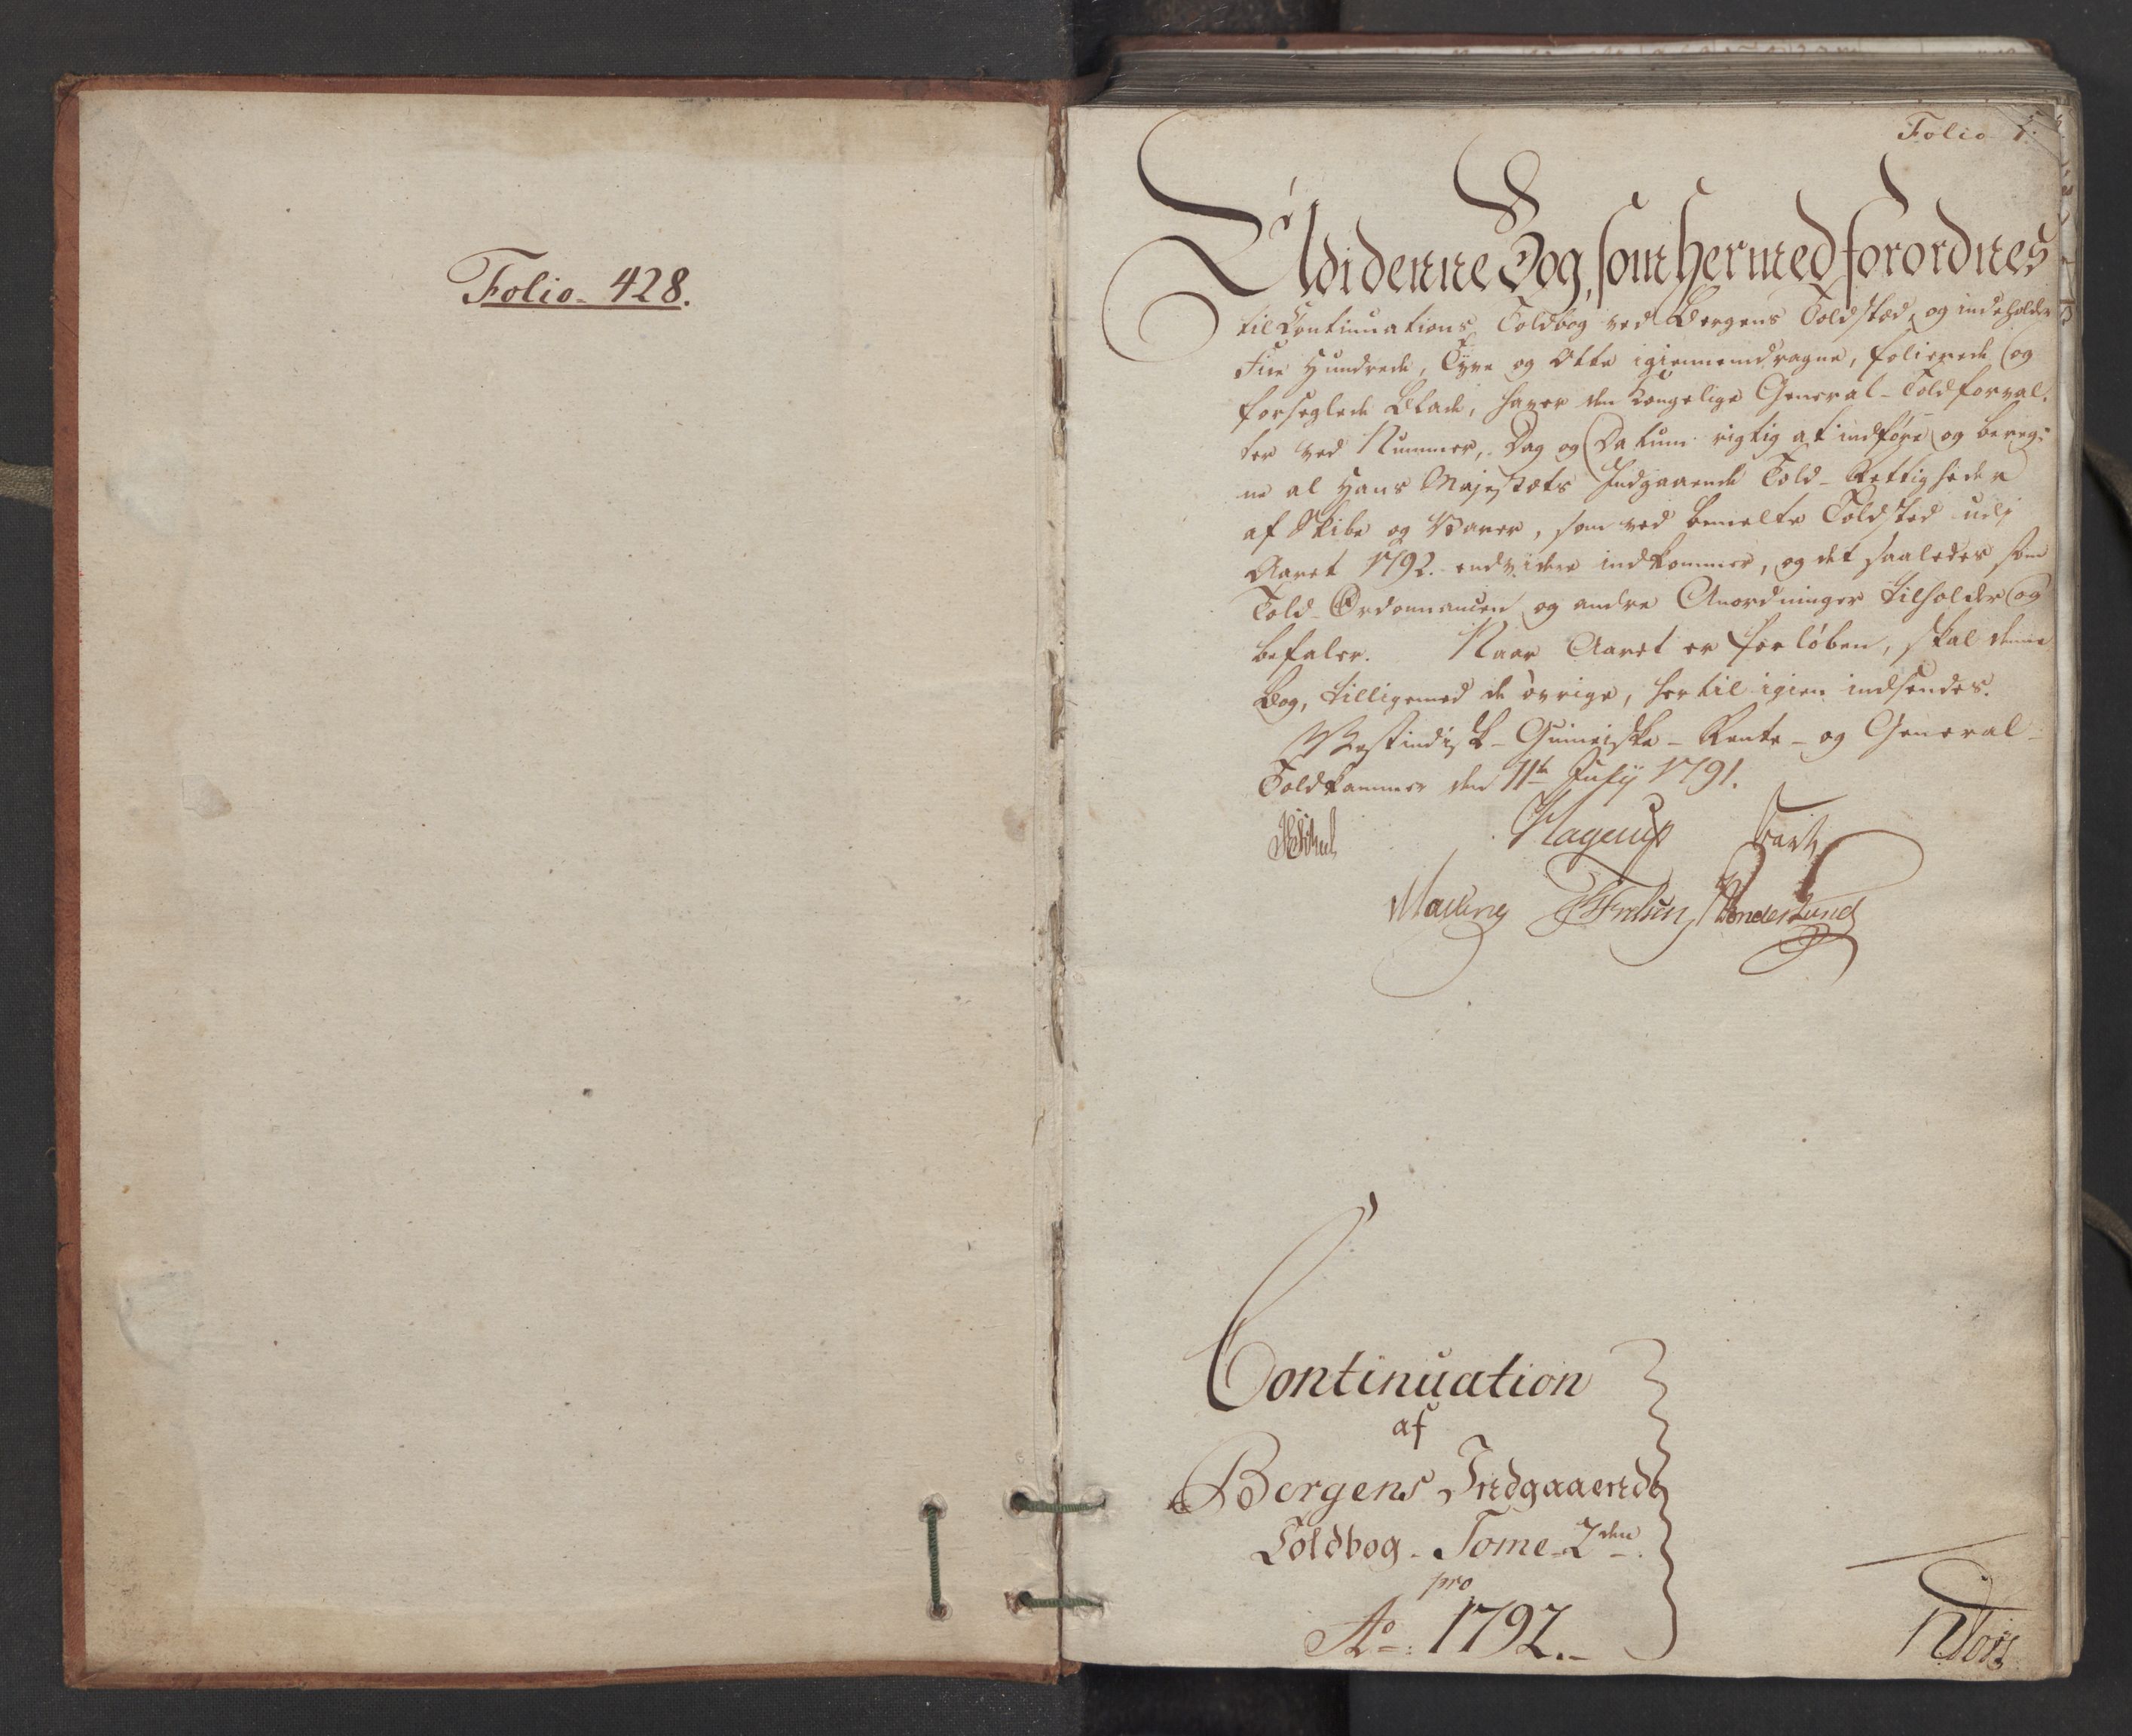 Folio. 428.
Folio 1.
Udi denne Bog, som hermed forordnes
til Continuations Toldbog ved Bergens Toldsted, og indeholder
Fire Hundrede, Tyve og Otte igiennemdragne, folierede og
forseglede Blade, haver den Kongelige General-Toldforval-
ter ved Nummer, Dag og Datum rigtig at indføre og bereg-
ne al Hans Majestæts Indgaaende Told-Rettigheder
af Skibe og Varer, som ved bemelte Toldsted udi
Aaret 1792. endvidere indkommer, og det saaledes som
Told-Ordonnancen og andre Anordninger tilholder og
befaler. Naar Aaret er forløben, skal denne
Bog, tilligemed de øvrige, hertil igien indsendes.
Vestindisk-Guineiske-Rente- og General-
Toldkammer den 11te July 1791.
Hagerup
Malling Sønderlund
Continuation
af
Bergens Indgaaende
Toldbog. Tome. 2den
pro
Ao: 1792.